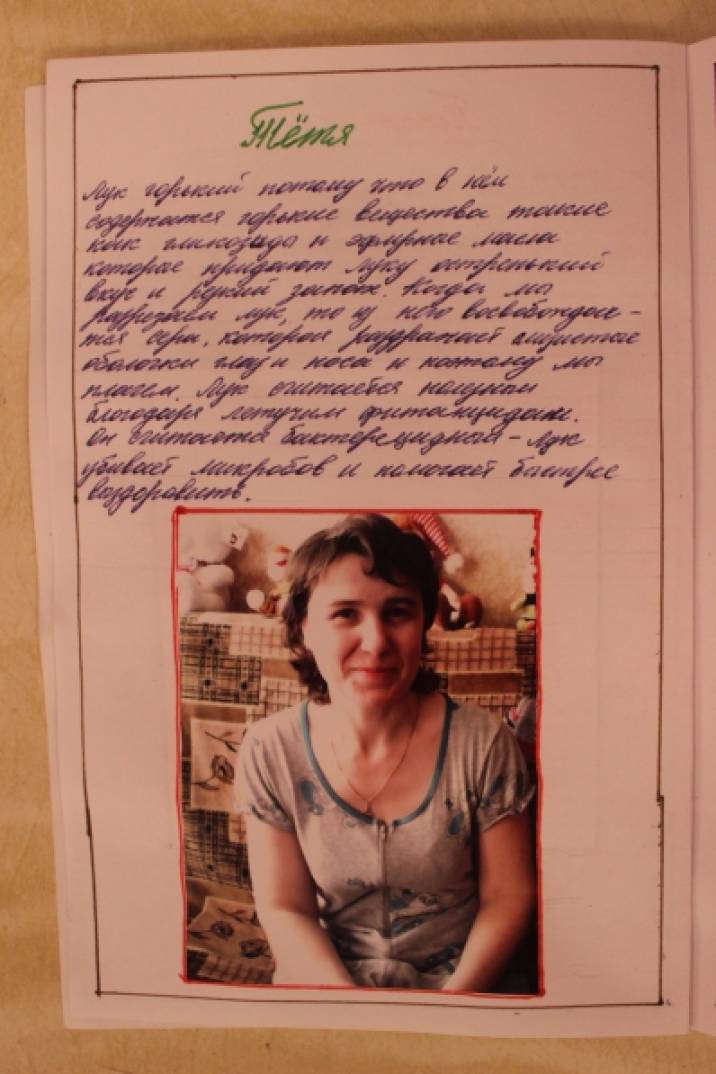 Тётя
Лук горький потому что в нём
содержатся горькие вещества такие
как гликозиды и эфирные масла
которые придают луку остренький
вкус и резкий запах. Когда мы
разрезаем лук, то из него восвобождае-
тся сера, которая раздражает слизистые
оболочки глаз и носа и поэтому мы
плачем. Лук считается полезным
благодаря летучим фитанцидам.
Он считается бактерецидным - Лук
убивает микробов и помогает быстрее
выздороветь.